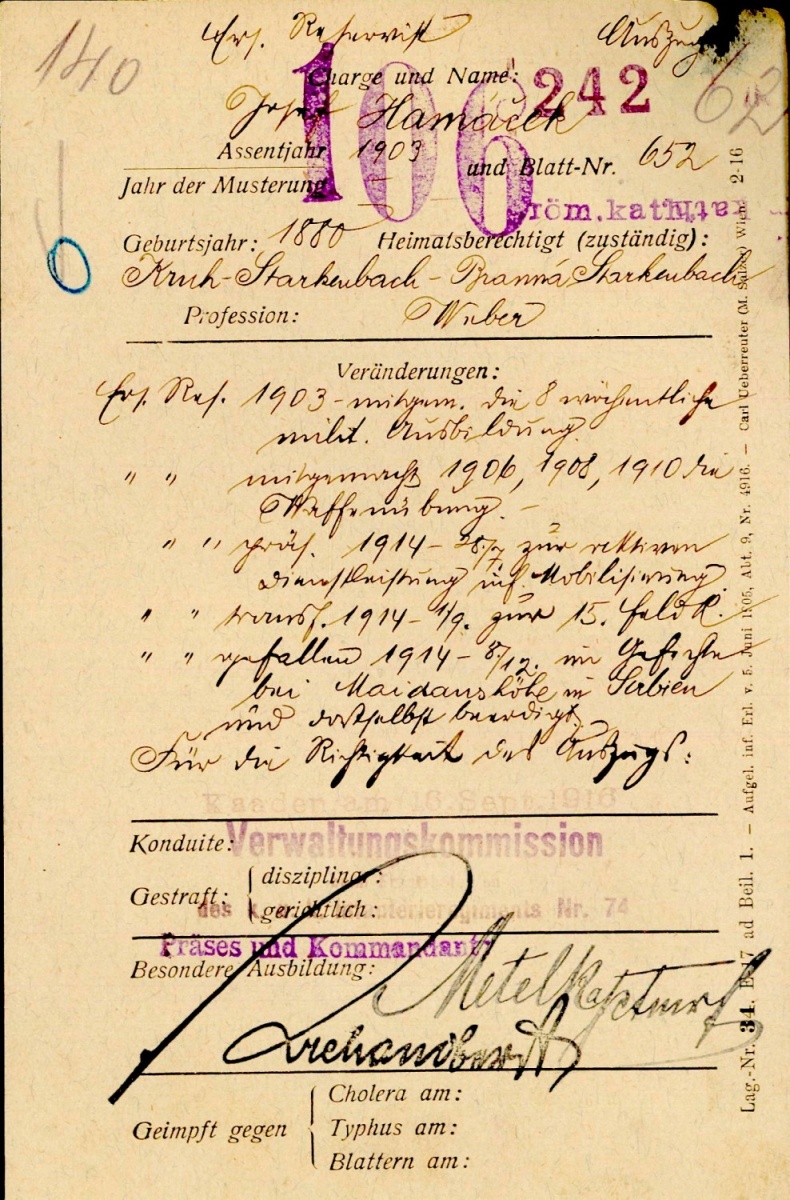 140
Ers. Reservist Auszug
Charge und Name:
106 242
62
Josef Hamáček
Assentjahr 1903 und Blatt-Nr. 652
Jahr der Musterung
röm. kath.
Geburtsjahr: 1880 Heimatsberechtigt (zuständig):
Kruh-Starkenbach-Branná Starkenbach
Profession: Weber
Veränderungen:
Ers. Res. 1903 - mitgem. die 8 wöchentliche
milit. Ausbildung.
" " mitgemacht 1906, 1908, 1910 die
Waffenübung. -
" " präs. 1914 - 28/7 zur aktiven
Dienstleistung inf. Mobilisierung.
" " transf. 1914 - 1/9. zur 15. Feld K.
" " gefallen 1914 - 8/12. im Gefechte
bei Maidanshöhe in Serbien
und dortselbst beerdigt.
Für die Richtigkeit des Auszugs:
Kaaden am 16. Sept. 1916
Konduite:
Verwaltungskommission
Gestraft: disziplinar:
gerichtlich:
des k. Infanterieregiments Nr. 74
Präses und Kommandant
Besondere Ausbildung:
Geimpft gegen
Cholera am:
Typhus am:
Blattern am:
Lag.-Nr. 34. E-7 ad Beil. 1. — Aufgel. inf. Erl. v. 5. Juni 1905, Abt. 9, Nr. 4916. — Carl Ueberreuter (M. Salzer) Wien. 2-16